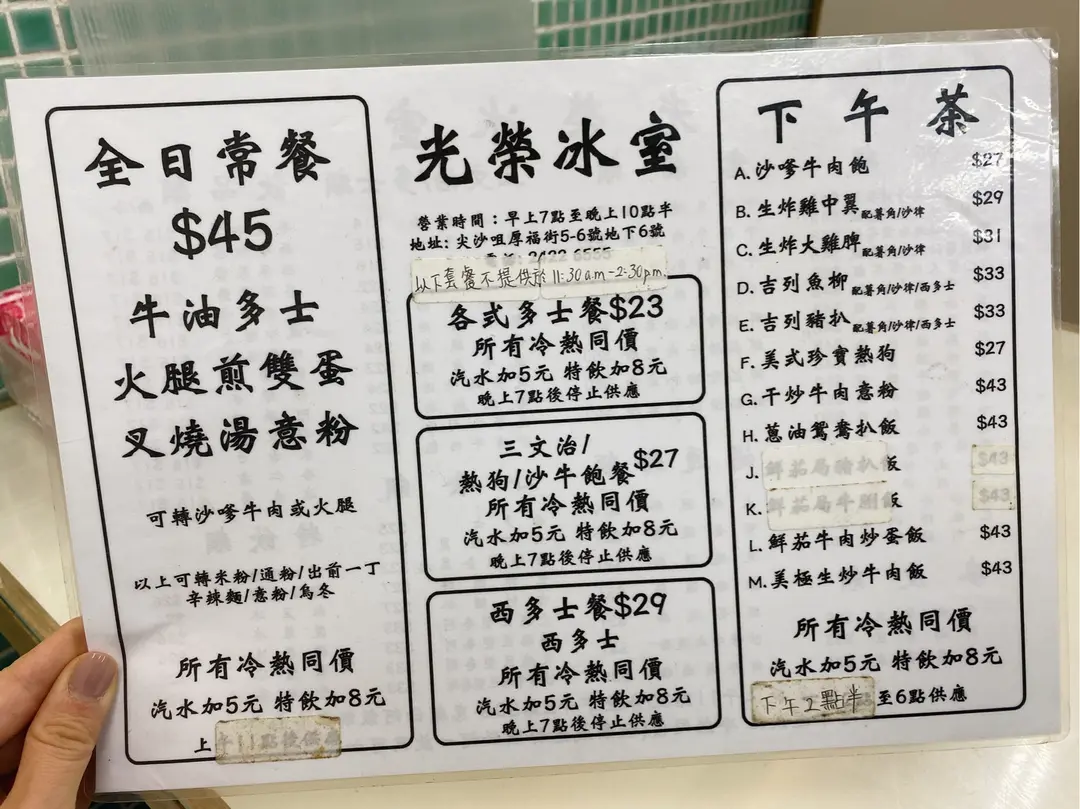 全日常餐
$45
牛油多士
火腿煎雙蛋
叉燒湯意粉
可轉沙嗲牛肉或火腿
以上可轉米粉/通粉/出前一丁
辛辣麵/意粉/烏冬
所有冷熱同價
汽水加5元 特飲加8元
上午11點後供應
光榮冰室
營業時間：早上7點至晚上10點半
地址: 尖沙咀厚福街5-6號地下6號
2422 6555
以下套餐不提供於 11:30am-2:30pm.
各式多士餐$23
所有冷熱同價
汽水加5元 特飲加8元
晚上7點後停止供應
三文治/
熱狗/沙牛飽餐$27
所有冷熱同價
汽水加5元 特飲加8元
晚上7點後停止供應
西多士餐$29
西多士
所有冷熱同價
汽水加5元 特飲加8元
晚上7點後停止供應
下午茶
A. 沙嗲牛肉飽 $27
B. 生炸雞中翼配薯角/沙律 $29
C. 生炸大雞脾配薯角/沙律 $31
D. 吉列魚柳 配薯角/沙律/西多士 $33
E. 吉列豬扒配薯角/沙律/西多士 $33
F. 美式珍寶熱狗 $27
G. 干炒牛肉意粉 $43
H. 蔥油鴛鴦扒飯 $43
J. 鮮茄焗豬扒飯 $43
K. 鮮茄焗牛脷飯 $43
L. 鮮茄牛肉炒蛋飯 $43
M. 美極生炒牛肉飯 $43
所有冷熱同價
汽水加5元 特飲加8元
下午2點半至6點供應